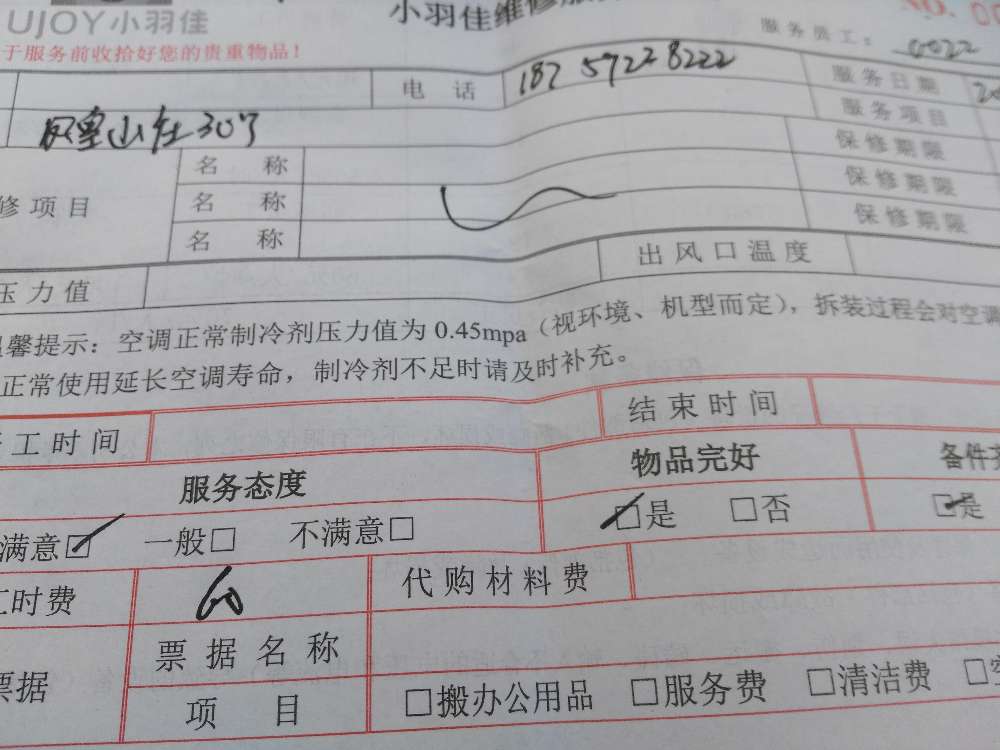 UJOY小羽佳
小羽佳维修服
NO. 00
于服务前收拾好您的贵重物品!
服务员工: 0022
电 话 187 5722 8222 服务日期 20
凤皇山庄307 服务项目
名 称 保修期限
修项目 名 称 保修期限
名 称 保修期限
压力值 出风口温度
温馨提示: 空调正常制冷剂压力值为 0.45mpa (视环境、机型而定), 拆装过程会对空调
正常使用延长空调寿命, 制冷剂不足时请及时补充。
工时间 结束时间
服务态度 物品完好 备件齐
满意☑ 一般□ 不满意□ ☑是 □否 ☑是
工时费 60 代购材料费
票据 票据名称
项 目 □搬办公用品 □服务费 □清洁费 □空